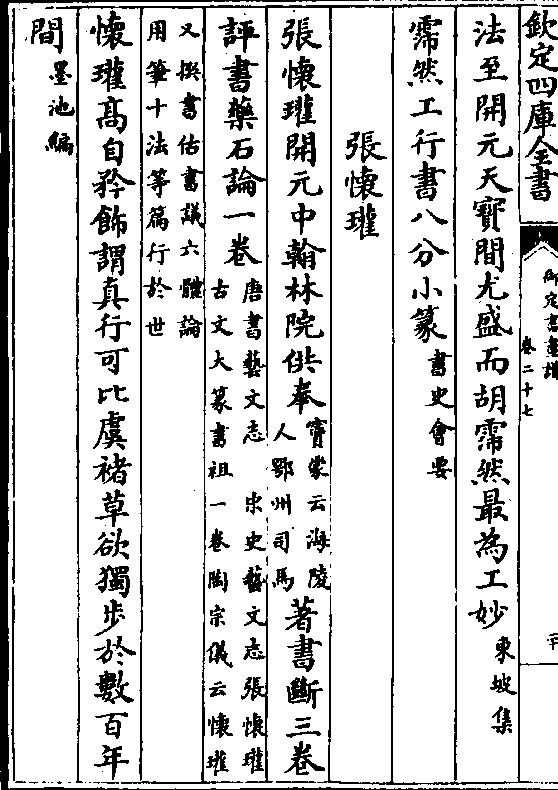 欽定四庫全書
御定書畫譜
卷二十七
法至開元天寶間尤盛而胡霈然最為工妙東坡集
霈然工行書八分小篆書史會要
張懷瓘
張懷瓘開元中翰林院供奉竇蒙云海陵人鄂州司馬著書斷三卷
評書藥石論一卷唐書藝文志 宋史藝文志張懷瓘古文大篆書祖一卷陶宗儀云懷瓘
又撰書估書議六體論用筆十法等篇行於世
懷瓘高自矜飾謂真行可比虞褚草欲獨步於數百年
間墨池編